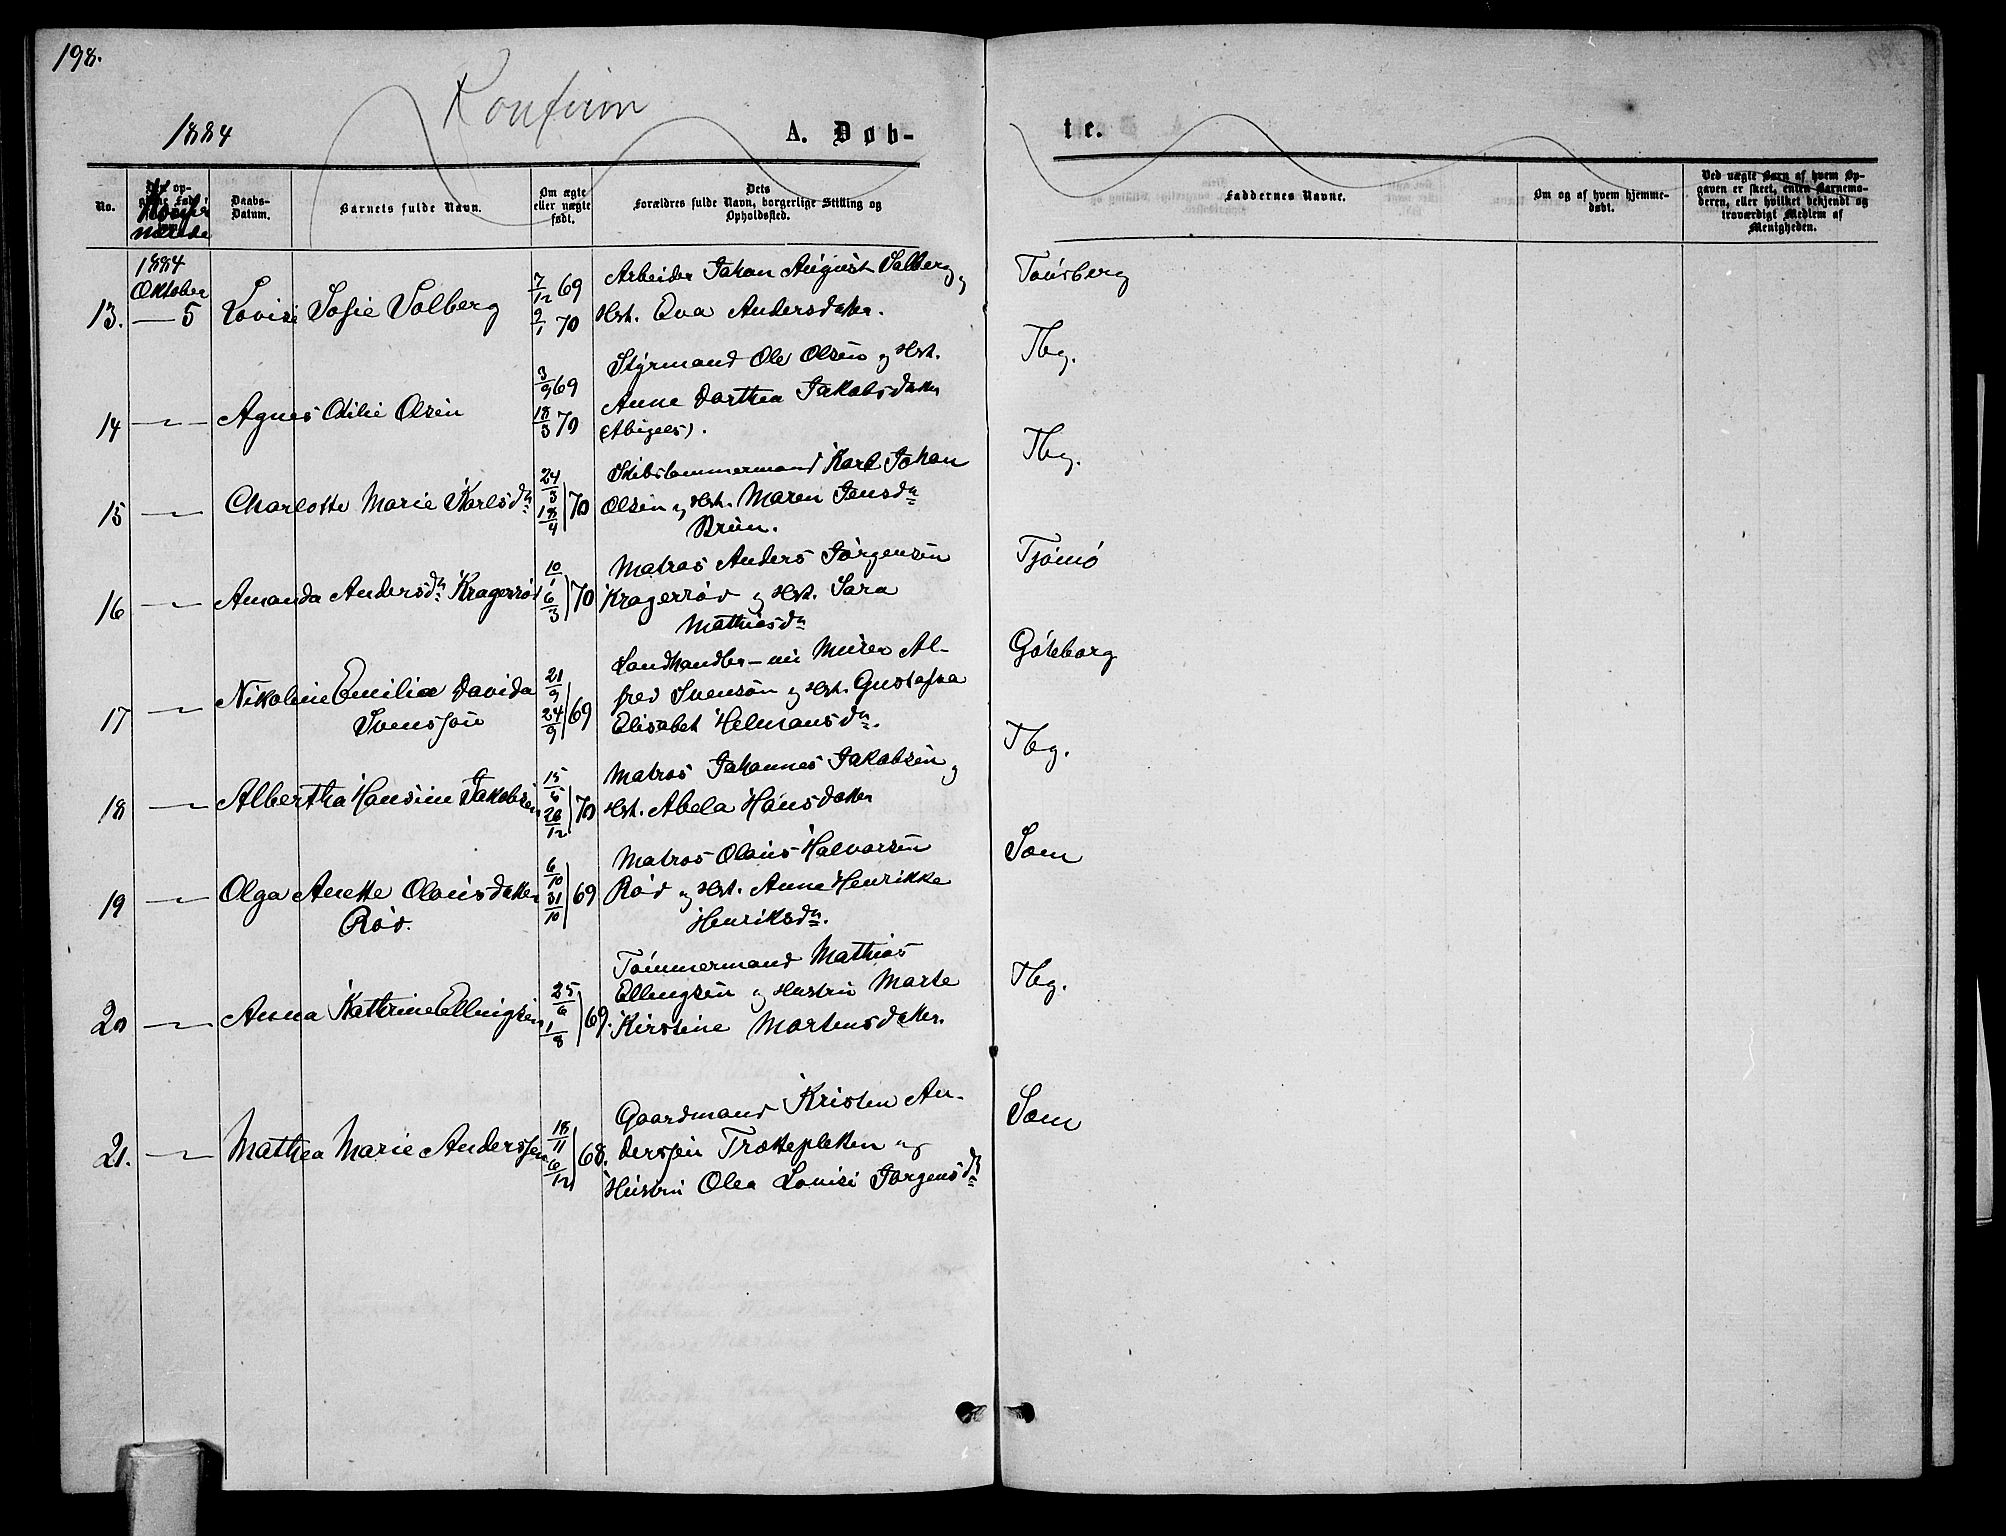 198.
Konfirm
1884
A. Døb-
te.
No.
Daabs-
Datum.
Barnets fulde Navn.
Om ægte
eller uægte
født.
Dets
Forældres fulde Navn, borgerlige Stilling og
Opholdssted.
Faddernes Navne.
Om og af hvem hjemme-
døbt.
Ved uægte Børn af hvem Op-
gaven er skeet, enten Barnemo-
deren, eller hvilket bekjendt og
troværdigt Medlem af
Menigheden.
1884
Oktober
13. — 5 Lovise Sofie Solberg 7/12 69 2/1 70
Arbeider Johan August Solberg og
Hst. Eva Andersdatter.
Tønsberg
14 — Agnes Otilie Olsen 3/9 69 18/3 70
Styrmand Ole Olsen og Hst.
Anne Dorthea Jakobsdatter
Tbg.
15 — Charlotte Marie Karlsdn 24/3 18/4 70
Skibstømmermand Karl Johan
Olsen og Hst. Maren Jensdn
Bruun.
Tbg.
16 — Amanda Andersdn Kragerrød 10/1 6/3 70
Matros Anders Jørgensen
Kragerrød og Hst. Sara
Mathiasdn
Tjømø
17 — Nikoline Emilie Davida
Svenssøn 21/9 24/9 69
Landhandler — nu Murer Al-
fred Svensøn og Hst. Gustafva
Elisabet Helmansdn.
Gøteborg
18 — Albertha Hansine Jakobsen 15/6 26/12 70
Matros Johannes Jakobsen og
Hst. Abela Hansdatter
Tbg.
19 — Olga Anette Olausdatter
Rød. 6/10 31/10 69
Matros Olaus Halvorsen
Rød og Hst. Anne Henrikke
Henriksdn.
Sæm
20 — Anna Kathrine Ellingsen 25/6 1/8 69.
Tømmermand Mathias
Ellingsen og Hustru Marte
Kirstine Mortensdatter.
Tbg.
21. — Mathea Marie Anderssen 18/11 6/12 68.
Gaardmand Kristen An-
derssen Trættepletten og
Hustru Olea Lovise Jørgensdn
Sæm